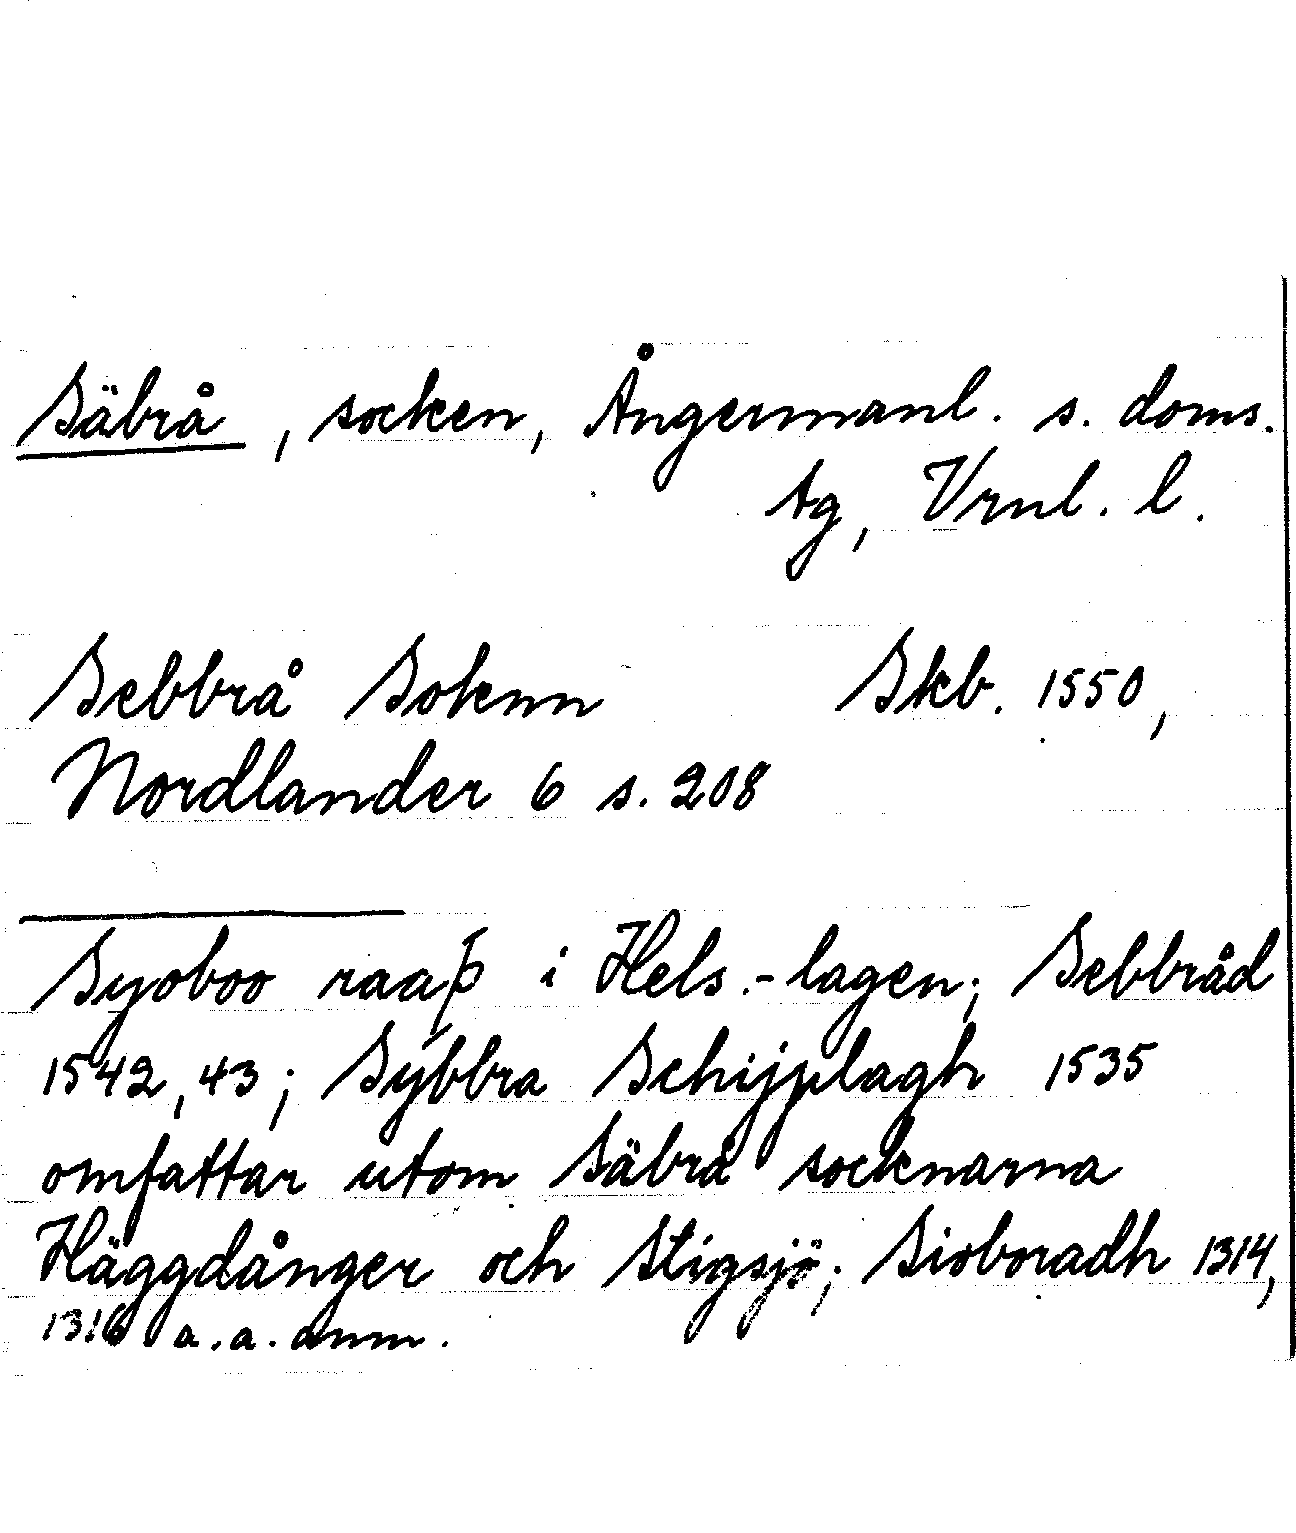 Säbrå, socken, Ångermanl. s. doms.
tg, Vrnl. l.
Sebbrå Soknn Skb. 1550,
Nordlander 6 s. 208
Syoboo raaþ i Hels.-lagen; Sebbråd
1542, 43; Sybbra Schijplagh 1535
omfattar utom Säbrå socknarna
Häggdånger och Stigsjö; Sioboradh 1314,
1316 a.a. anm.